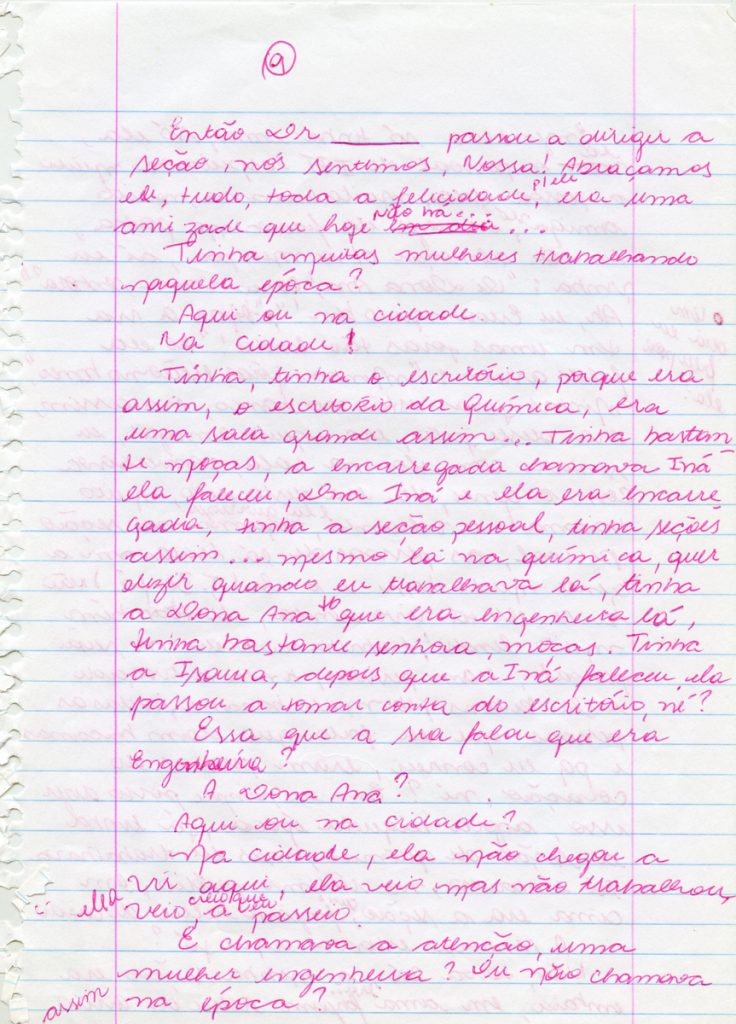 9
Então Dr ______ passou a dirigir a
seção, nós sentimos, Nossa! Abraçamos
ele, tudo, toda a felicidade, p/ ele era uma
amizade que hoje Não há... em dia ...
Tinha muitas mulheres trabalhando
naquela época?
Aqui ou na cidade.
Na cidade!
Tinha, tinha o escritório, porque era
assim, o escritório da Química, era
uma sala grande assim... Tinha bastan
te moças, a encarregada chamava Iná
ela faleceu, Dona Iná e ela era encarre
gada, tinha a seção pessoal, tinha seções
assim... mesmo lá na química, quer
dizer quando eu trabalhava lá, tinha
a Dona Ana que era engenheira lá,
tinha bastante senhora, moças. Tinha
a Isaura, depois que a Iná faleceu, ela
passou a tomar conta do escritório, né?
Essa que a sra falou que era
Engenheira?
A Dona Ana?
Aqui ou na cidade?
Na cidade, ela não chegou a
vir aqui, ela veio mas não trabalhou,
ela veio, creio que a passeio.
E chamava a atenção, uma
mulher engenheira? Ou não chamava
assim na época?